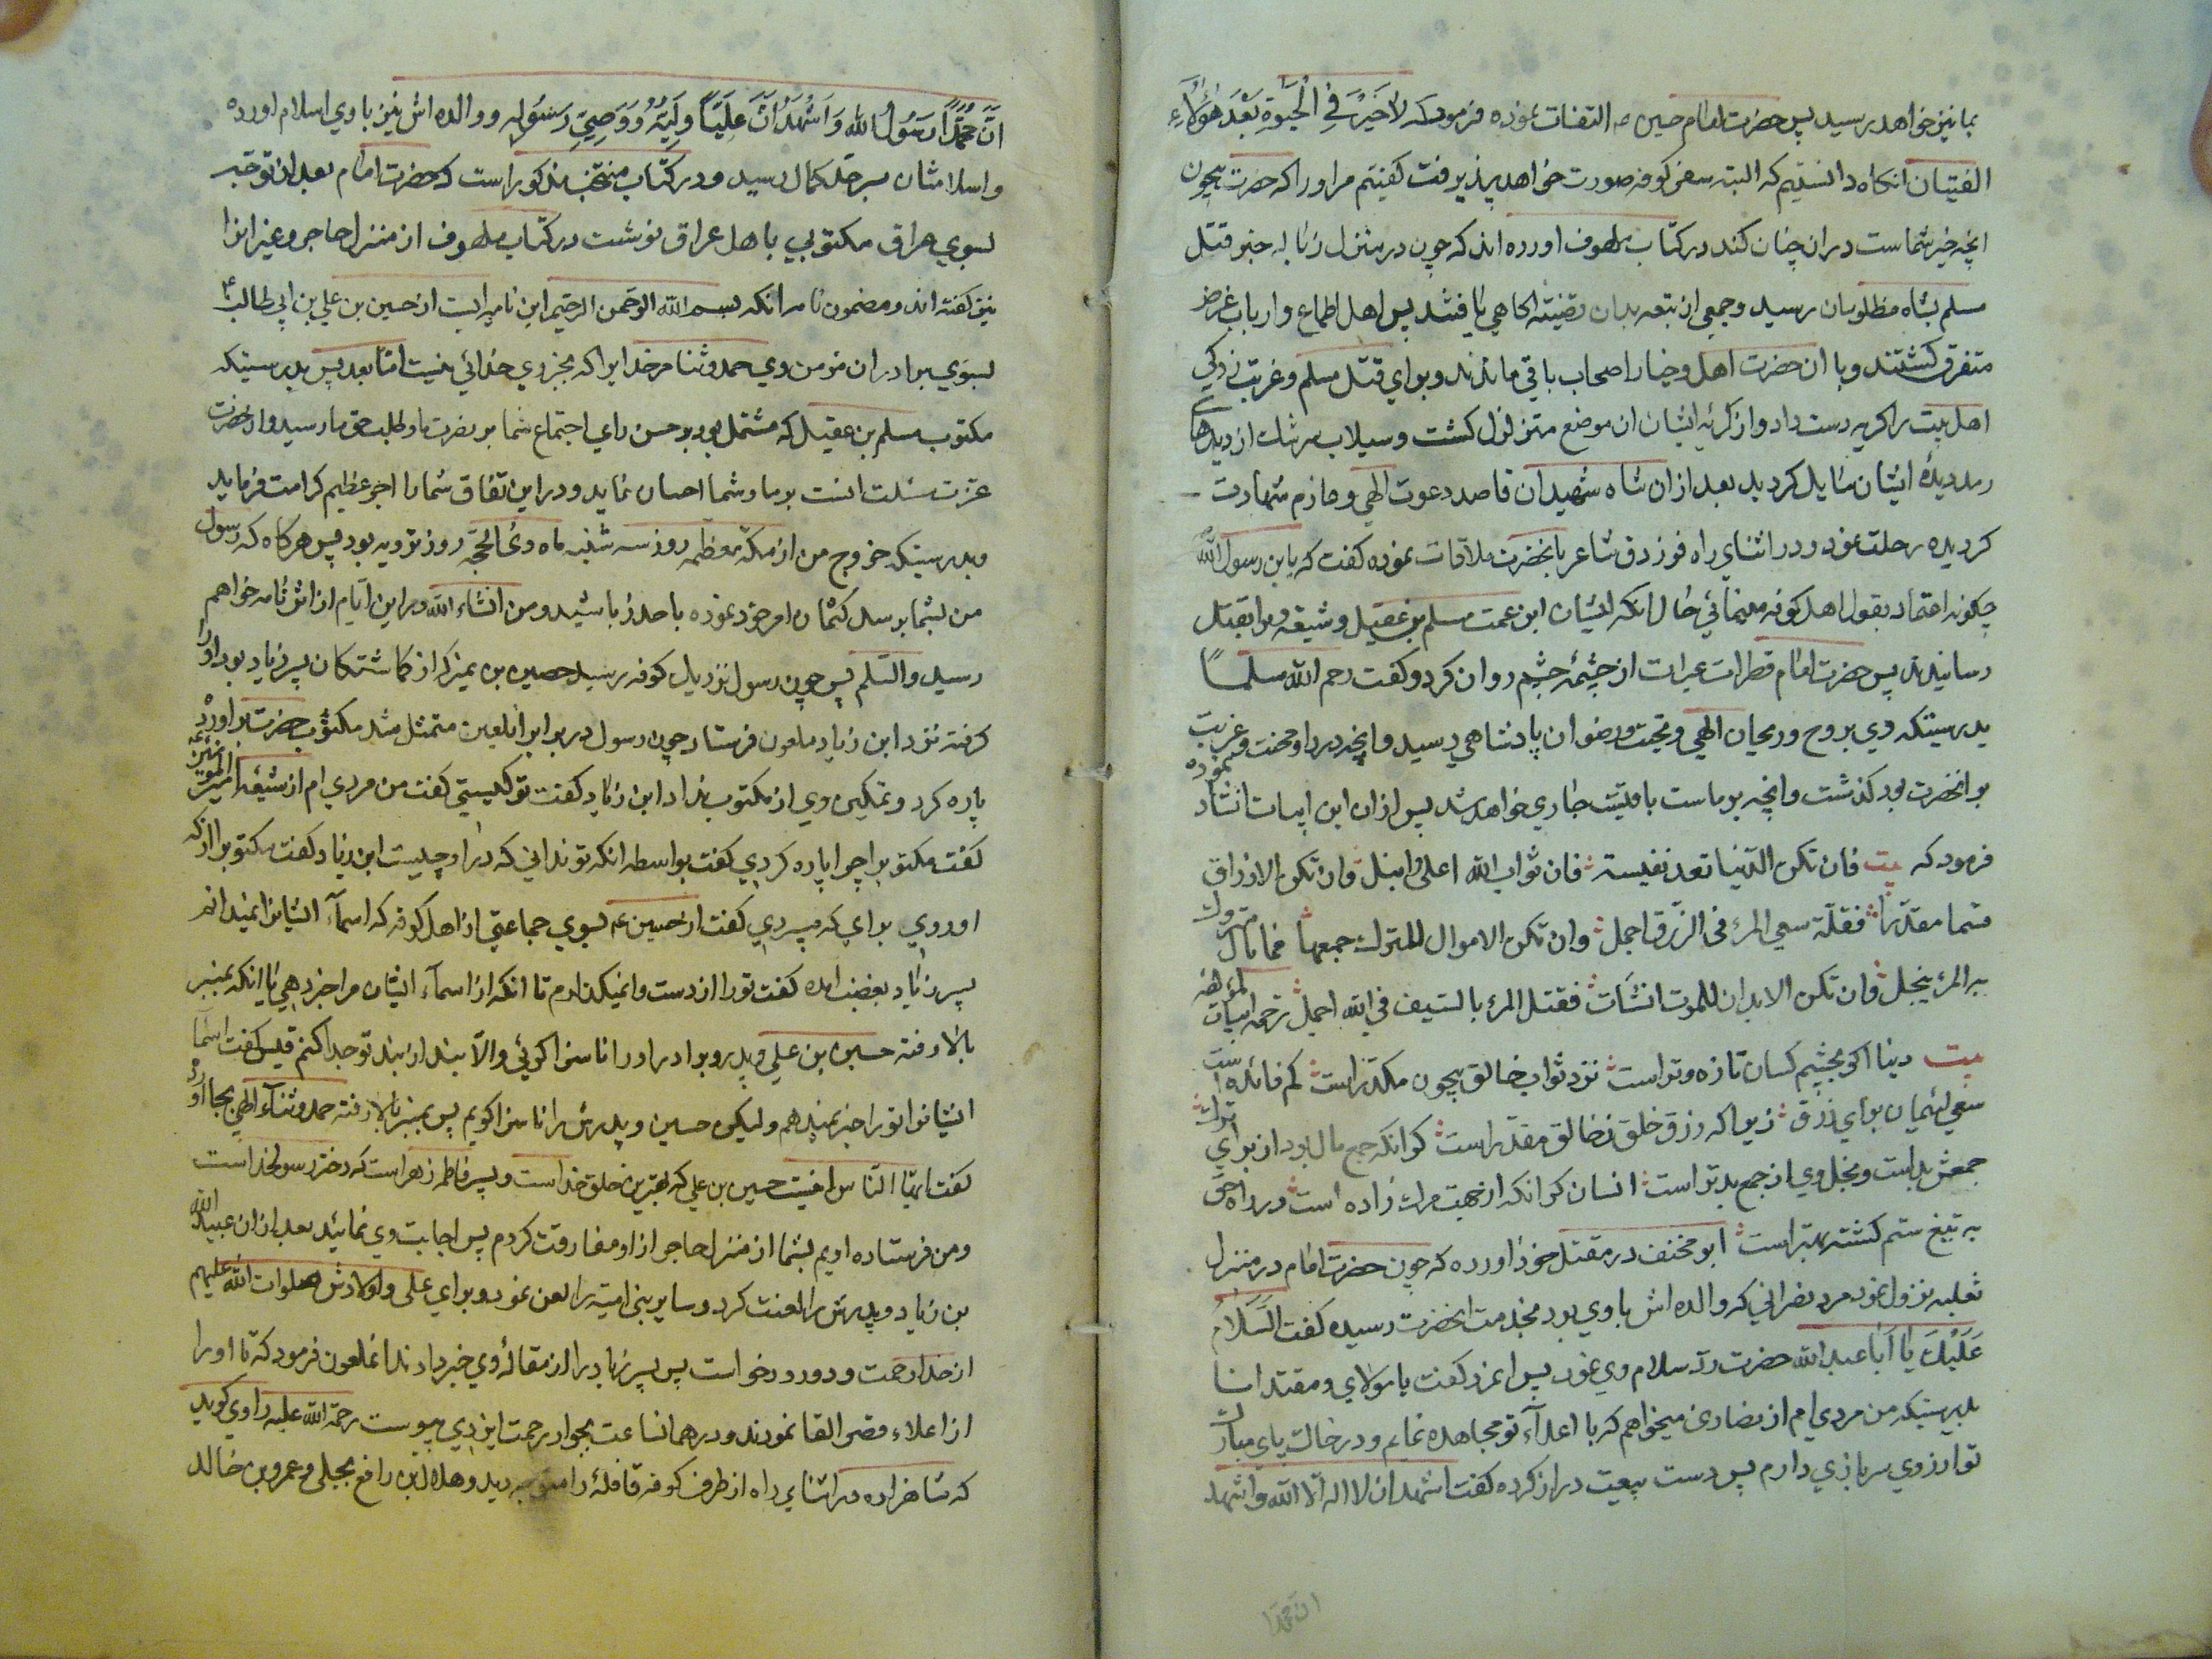 بما نیز خواهد رسید پس حضرت امام حسین التفات نموده فرمود که لاَ خَیْرَ فِی الْحَیٰوةِ بَعْدَ هٰؤُلاَءِ
الفتیان انکاه دانستیم که البته سفر کوفه صورت خواهد پذیرفت کفتیم مر اورا که حضرت بیچون
انچه خیر شماست دران چنان کند در کتاب ملهوف اورده اند که چون در منزل زباله خبر قتل
مسلم بشاه مظلومان رسید و جمعی از تبعه بدان قضیه اکاهی یافتند پس اهل اطماع و ارباب غرض
متفرق کشتند و با ان حضرت اهل و خیار اصحاب باقی ماندند و برای قتل مسلم و غربت
اهل بیت را کریه دست داد و از کریه ایشان ان موضع متزلزل کشت و سیلاب سرشک از دیدهای
رمد دیدهٔ ایشان سایل کردید بعد ازان شاه شهیدان قاصد دعوت الهی و عازم شهادت
کردیده رحلت نمود و در اثنای راه فرزدق شاعر بانحضرت ملاقات نموده کفت که یابن رسول الله
چکونه اعتماد بقول اهل کوفه مینمائی حال انکه ایشان ابن عمت مسلم بن عقیل و شیعه ویرا بقتل
رسانیدند پس حضرت امام قطرات عبرات از چشمهٔ چشم روان کرد و کفت رحم الله مسلماً
بدرستیکه وی بروح و ریحان الهی و تحیت و رضوان پادشاهی رسید و انچه درد و محنت و غربت
بر انحضرت بود کذشت و انچه بر ماست باقیست جاری خواهد شد پس ازان این ابیات انشاد نموده
فرمود که بیت فان تکن الدّنیا تعد نفیسة فان ثواب الله اعلی و انبل وان تکن الارزاق
قسما مقدّراً فقلّة سعی المرء فی الرّزق اجمل وان تکن الاموال للترک جمعها فما بال متروک
به المرء یبخل وان تکن الابدان للموت انشأت فقتل المرء بالسّیف فی الله اجمل ترجمه ابیات لمؤلفه
بیت دنیا اکر بچشم کسان تازه و تر است نزد ثواب خالق بیچون مکدّر است کم فائده است
سعی لئیمان برای رزق زیرا که رزق خلق ز خالق مقدّر است کر انکه جمع مال بود از برای ترک
جمعش بد است و بخل وی از جمع بدتر است انسان کر انکه از جهت مرک زاده است در راه حق
به تیغ ستم کشته بهتر است ابو مخنف در مقتل خود اورده که چون حضرت امام در منزل
ثعلبه نزول نمود مرد نصرانی که والده اش با وی بود بخدمت انحضرت رسیده کفت السَّلاَمُ
عَلَیْکَ یَا اَبَا عبد الله حضرت ردّ سلام وی نمود پس انمرد کفت یا مولای و مقتدانا
بدرستیکه من مردی ام از نصاری میخواهم که با اعداء تو مجاهده نمایم و در خاک پای مبارک
تو ارزوی سربازی دارم پس دست بیعت دراز کرده کفت اشهد ان لا اله الا الله و اشهد
ان محمدا
اَنَّ مُحَمَّداً رَسُولُ اللهِ وَ اَشْهَدُ اَنَّ عَلِیّاً وَلِیُّهُ وَ وَصِیُّ رَسُولِهِ و والده اش نیز با وی اسلام اورده
و اسلامشان بسر حد کمال رسید و در کتاب منتخب مذکور است که حضرت امام بعد از توجه
بسوی عراق مکتوبی باهل عراق نوشت در کتاب ملهوف از منزل حاجر و غیر انرا
نیز کفته اند و مضمون نامه انکه بسم الله الرحمن الرحیم این نامه ایست از حسین بن علی بن ابی طالب ع
بسوی برادران مؤمن وی حمد و ثنا مر خدایرا که بجز وی خدائی نیست امّا بعد پس بدرستیکه
مکتوب مسلم بن عقیل که مشتمل بود بر حسن رای اجتماع شما بر نصرت ما و طلب حق ما رسید و از حضرت
عزت مسئلت انست بر ما و شما احسان نماید و در این اتفاق شمارا اجر عظیم کرامت فرماید
و بدرستیکه خروج من از مکّه معظمه روز سه شنبه ماه ذی الحجّه روز ترویه بود پس هرکاه که رسول
من بشما برسد کتمان امر خود نموده با حذر باشید و من انشاء الله در این ایّام از اثر نامه خواهم
رسید والسّلم پس چون رسول نزدیک کوفه رسید حصین بن نمیر که از کماشتکان پسر زیاد بود اورا
کرفته نزد ابن زیاد ملعون فرستاد چون رسول در برابر انلعین متمثل شد مکتوب حضرت براورده
پاره کرد و تمکین وی از مکتوب نداد ابن زیاد کفت تو کیستی کفت من مردی ام از شیعه امیر المؤمنین
کفت مکتوبرا چرا پاره کردی کفت بواسطه انکه تو ندانی که در او چیست ابن زیاد کفت مکتوبرا از که
اوردی برای که میبردی کفت از حسین بسوی جماعتی از اهل کوفه که اسمآء ایشانرا نمیدانم
پسر زیاد بغضب امده کفت تورا از دست وا نمیکذارم تا انکه از اسمآء ایشان مرا خبر دهی یا انکه بمنبر
بالا رفته حسین بن علی و پدر و برادر اورا ناسزا کوئی والّا بند از بند تو جدا کنم قیس کفت اسما
ایشانرا تورا خبر نمیدهم ولیکن حسین و پدرش را ناسزا کویم پس بمنبر بالا رفته حمد و ثنآء الهی بجا اورد
کفت ایّها النّاس حسین بن علی که بهترین خلق خداست و پسر فاطمه زهراست که دختر رسولخداست
و من فرستاده اویم بشما از منزل حاجر از او مفارقت کردم پس اجابت وی نمائید بعد ازان عبید الله
بن زیاد و پدرش را لعنت کرد و سایر بنی امیّه را لعن نمود و برای علی و اولادش صلوات الله علیهم
از خدا رحمت و درود خواست پس پسر زیاد را از مقالهٔ وی خبر دادند انملعون فرمود که تا اورا
از اعلاء قصر القا نمودند و در همانساعت بجوار رحمت ایزدی پیوست رحمة الله علیه راوی کوید
که شاهزاده در اثنای راه از طرف کوفه قافلهٔ را دید و هلال بن رافع بجلی و عمرو بن خالد